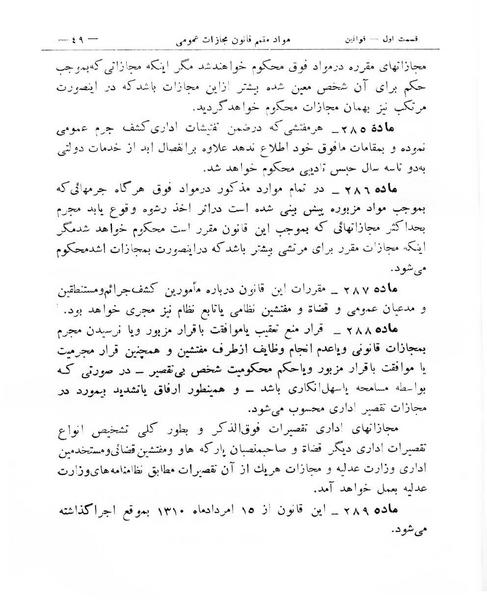 قسمت اول — قوانین
مواد متمم قانون مجازات عمومی
— ٤٩ —
مجازاتهای مقرره درمواد فوق محکوم خواهندشد مگر اینکه مجازاتی که بموجب
حکم برای آن شخص معین شده بیشتر ازاین مجازات باشد که در اینصورت
مرتکب نیز بهمان مجازات محکوم خواهدگردید.
ماده ٢٨٥ ـ هرمفتشی که درضمن تفتیشات اداری کشف جرم عمومی
نموده و بمقامات مافوق خود اطلاع ندهد علاوه برانفصال ابد از خدمات دولتی
به دو تا سه سال حبس تادیبی محکوم خواهد شد.
ماده ٢٨٦ ـ در تمام موارد مذکور درمواد فوق هرگاه جرمهائی که
بموجب مواد مزبوره پیش بینی شده است دراثر اخذ رشوه وقوع یابد مجرم
بحداکثر مجازاتهائی که بموجب این قانون مقرر است محکوم خواهد شدمگر
اینکه مجازات مقرر برای مرتشی بیشتر باشد که دراینصورت بمجازات اشدمحکوم
می‌شود.
ماده ٢٨٧ ـ مقررات این قانون درباره مأمورین کشف جرائم و مستنطقین
و مدعیان عمومی و قضاة و مفتشین نظامی یاتابع نظام نیز مجری خواهد بود.
ماده ٢٨٨ ـ قرار منع تعقیب یاموافقت باقرار مزبور ویا نرسیدن مجرم
بمجازات قانونی ویاعدم انجام وظایف ازطرف مفتشین و همچنین قرار مجرمیت
یا موافقت باقرار مزبور ویاحکم محکومیت شخص بی‌تقصیر ـ در صورتی که
بواسطه مسامحه یاسهل‌انگاری باشد ـ و همینطور ارفاق یاتشدید بیمورد در
مجازات تقصیر اداری محسوب می‌شود.
مجازاتهای اداری تقصیرات فوق‌الذکر و بطور کلی تشخیص انواع
تقصیرات اداری دیگر قضاة و صاحبمنصبان پارکه ها و مفتشین قضائی و مستخدمین
اداری وزارت عدلیه و مجازات هریك از آن تقصیرات مطابق نظامنامه‌های وزارت
عدلیه بعمل خواهد آمد.
ماده ٢٨٩ ـ این قانون از ١٥ امردادماه ١٣١٠ بموقع اجراگذاشته
می‌شود.